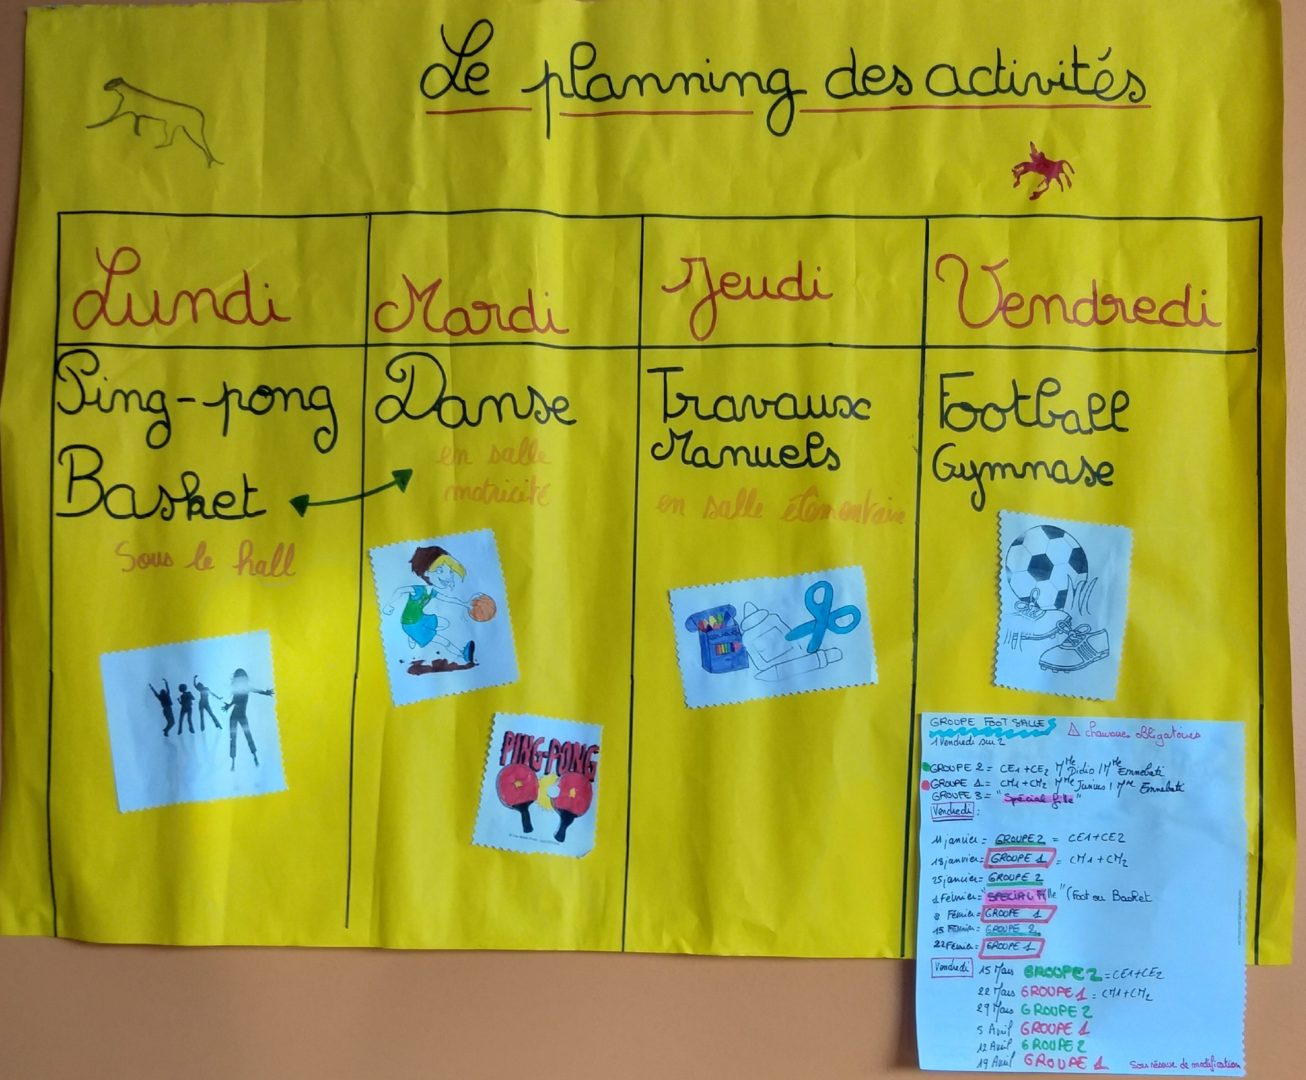 Le planning des activités
Lundi
Mardi
Jeudi
Vendredi
Ping-pong
Basket
Sous le hall
Danse
en salle
motricité
Travaux
Manuels
en salle élémentaire
Football
Gymnase
PING-PONG
GROUPE FOOT SALLE
1 Vendredi sur 2
⚠ chaussures obligatoires
GROUPE 2 = CE1+CE2 Mme Didio / Mme Ennebati
GROUPE 1 = CM1+CM2 Mme Junius / Mme Ennebati
GROUPE 3 = "Spécial fille"
Vendredi :
11 janvier = GROUPE 2 = CE1+CE2
18 janvier = GROUPE 1 = CM1+CM2
25 janvier = GROUPE 2
1 Février = "SPECIAL Fille" (Foot ou Basket
8 Février = GROUPE 1
15 Février = GROUPE 2
22 Février = GROUPE 1
Vendredi 15 Mars GROUPE 2 = CE1+CE2
22 Mars GROUPE 1 = CM1+CM2
29 Mars GROUPE 2
5 Avril GROUPE 1
12 Avril GROUPE 2
19 Avril GROUPE 1
Sous réserve de modification